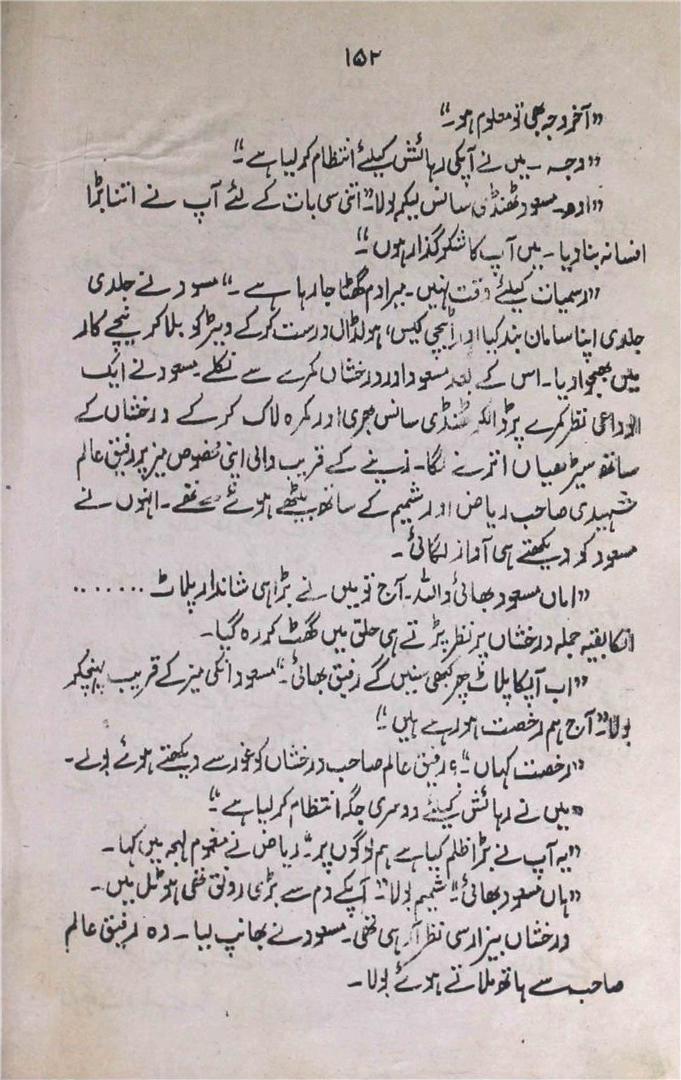 ۱۵۲
”آخر وجہ بھی تو معلوم ہو۔“
”وجہ ۔ میں نے آپکی رہائش کیلئے انتظام کر لیا ہے۔“
”اوہ۔ مسعود ٹھنڈی سانس لیکر بولا۔ ”اتنی سی بات کے لئے آپ نے اتنا بڑا
افسانہ بنا دیا ۔ میں آپ کا شکر گذار ہوں۔“
”رسمیات کیلئے وقت نہیں۔ میرا دم گھٹا جا رہا ہے ۔“ مسعود نے جلدی
جلدی اپنا سامان بند کیا اور اٹیچی کیس، ہولڈال درست کر کے ویٹر کو بلا کر نیچے کار
میں بھجوا دیا۔ اس کے بعد مسعود اور درخشاں کمرے سے نکلے۔ مسعود نے ایک
الوداعی نظر کمرے پر ڈالکر ٹھنڈی سانس بھری اور کمرہ لاک کر کے درخشاں کے
ساتھ سیڑھیاں اترنے لگا۔ زینے کے قریب والی اپنی مخصوص میز پر رفیق عالم
شہیدی صاحب ریاض اور شمیم کے ساتھ بیٹھے ہوئے تھے۔ انہوں نے
مسعود کو دیکھتے ہی آواز لگائی۔
”اماں مسعود بھائی واللہ۔ آج تو میں نے بڑا ہی شاندار پلاٹ .......
انکا بقیہ جملہ درخشاں پر نظر پڑتے ہی حلق میں گھٹ کر رہ گیا۔
”اب آپکا پلاٹ پھر کبھی سنیں گے رفیق بھائی۔“ مسعود انکی میز کے قریب پہنچکر
بولا۔ ”آج ہم رخصت ہو رہے ہیں۔“
”رخصت کہاں“۔؟ رفیق عالم صاحب درخشاں کو غور سے دیکھتے ہوئے بولے۔
”میں نے رہائش کیلئے دوسری جگہ انتظام کر لیا ہے۔“
”یہ آپ نے بڑا ظلم کیا ہے ہم لوگوں پر۔“ ریاض نے مغموم لہجہ میں کہا۔
”ہاں مسعود بھائی۔“ شمیم بولا۔ ”آپکے دم سے بڑی رونق تھی ہوٹل میں۔
درخشاں بیزار سی نظر آ رہی تھی۔ مسعود نے بھانپ لیا ۔ وہ رفیق عالم
صاحب سے ہاتھ ملاتے ہوئے بولا۔